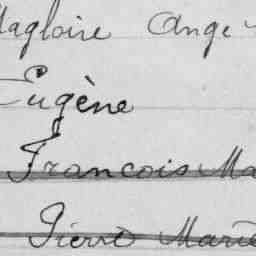 Magloire Ange
Eugène
Francois Ma
Pierre Marie